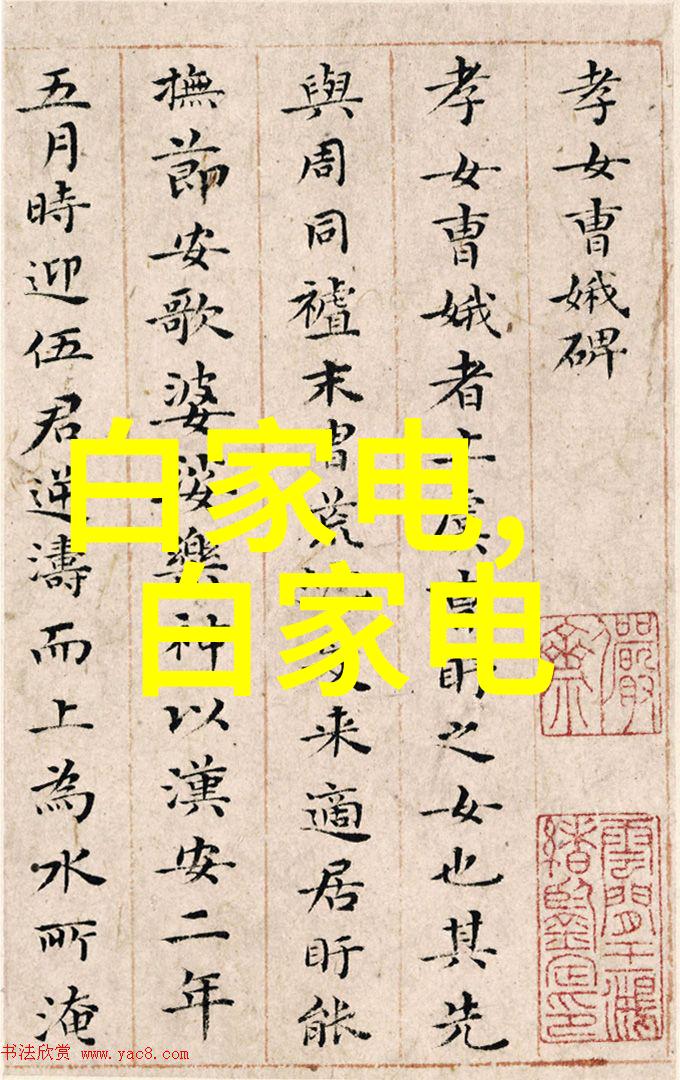 孝女曹娥碑
孝女曹娥者上虞盱之女也其先
與周同末胄荒来適居盱能
撫節安歌婆娑樂神以漢安二年
五月時迎伍君逆濤而上為水所淹
白家电,
白家电
儼齋
雲間王鴻緒鑒定印
书法欣赏 www.yac8.com